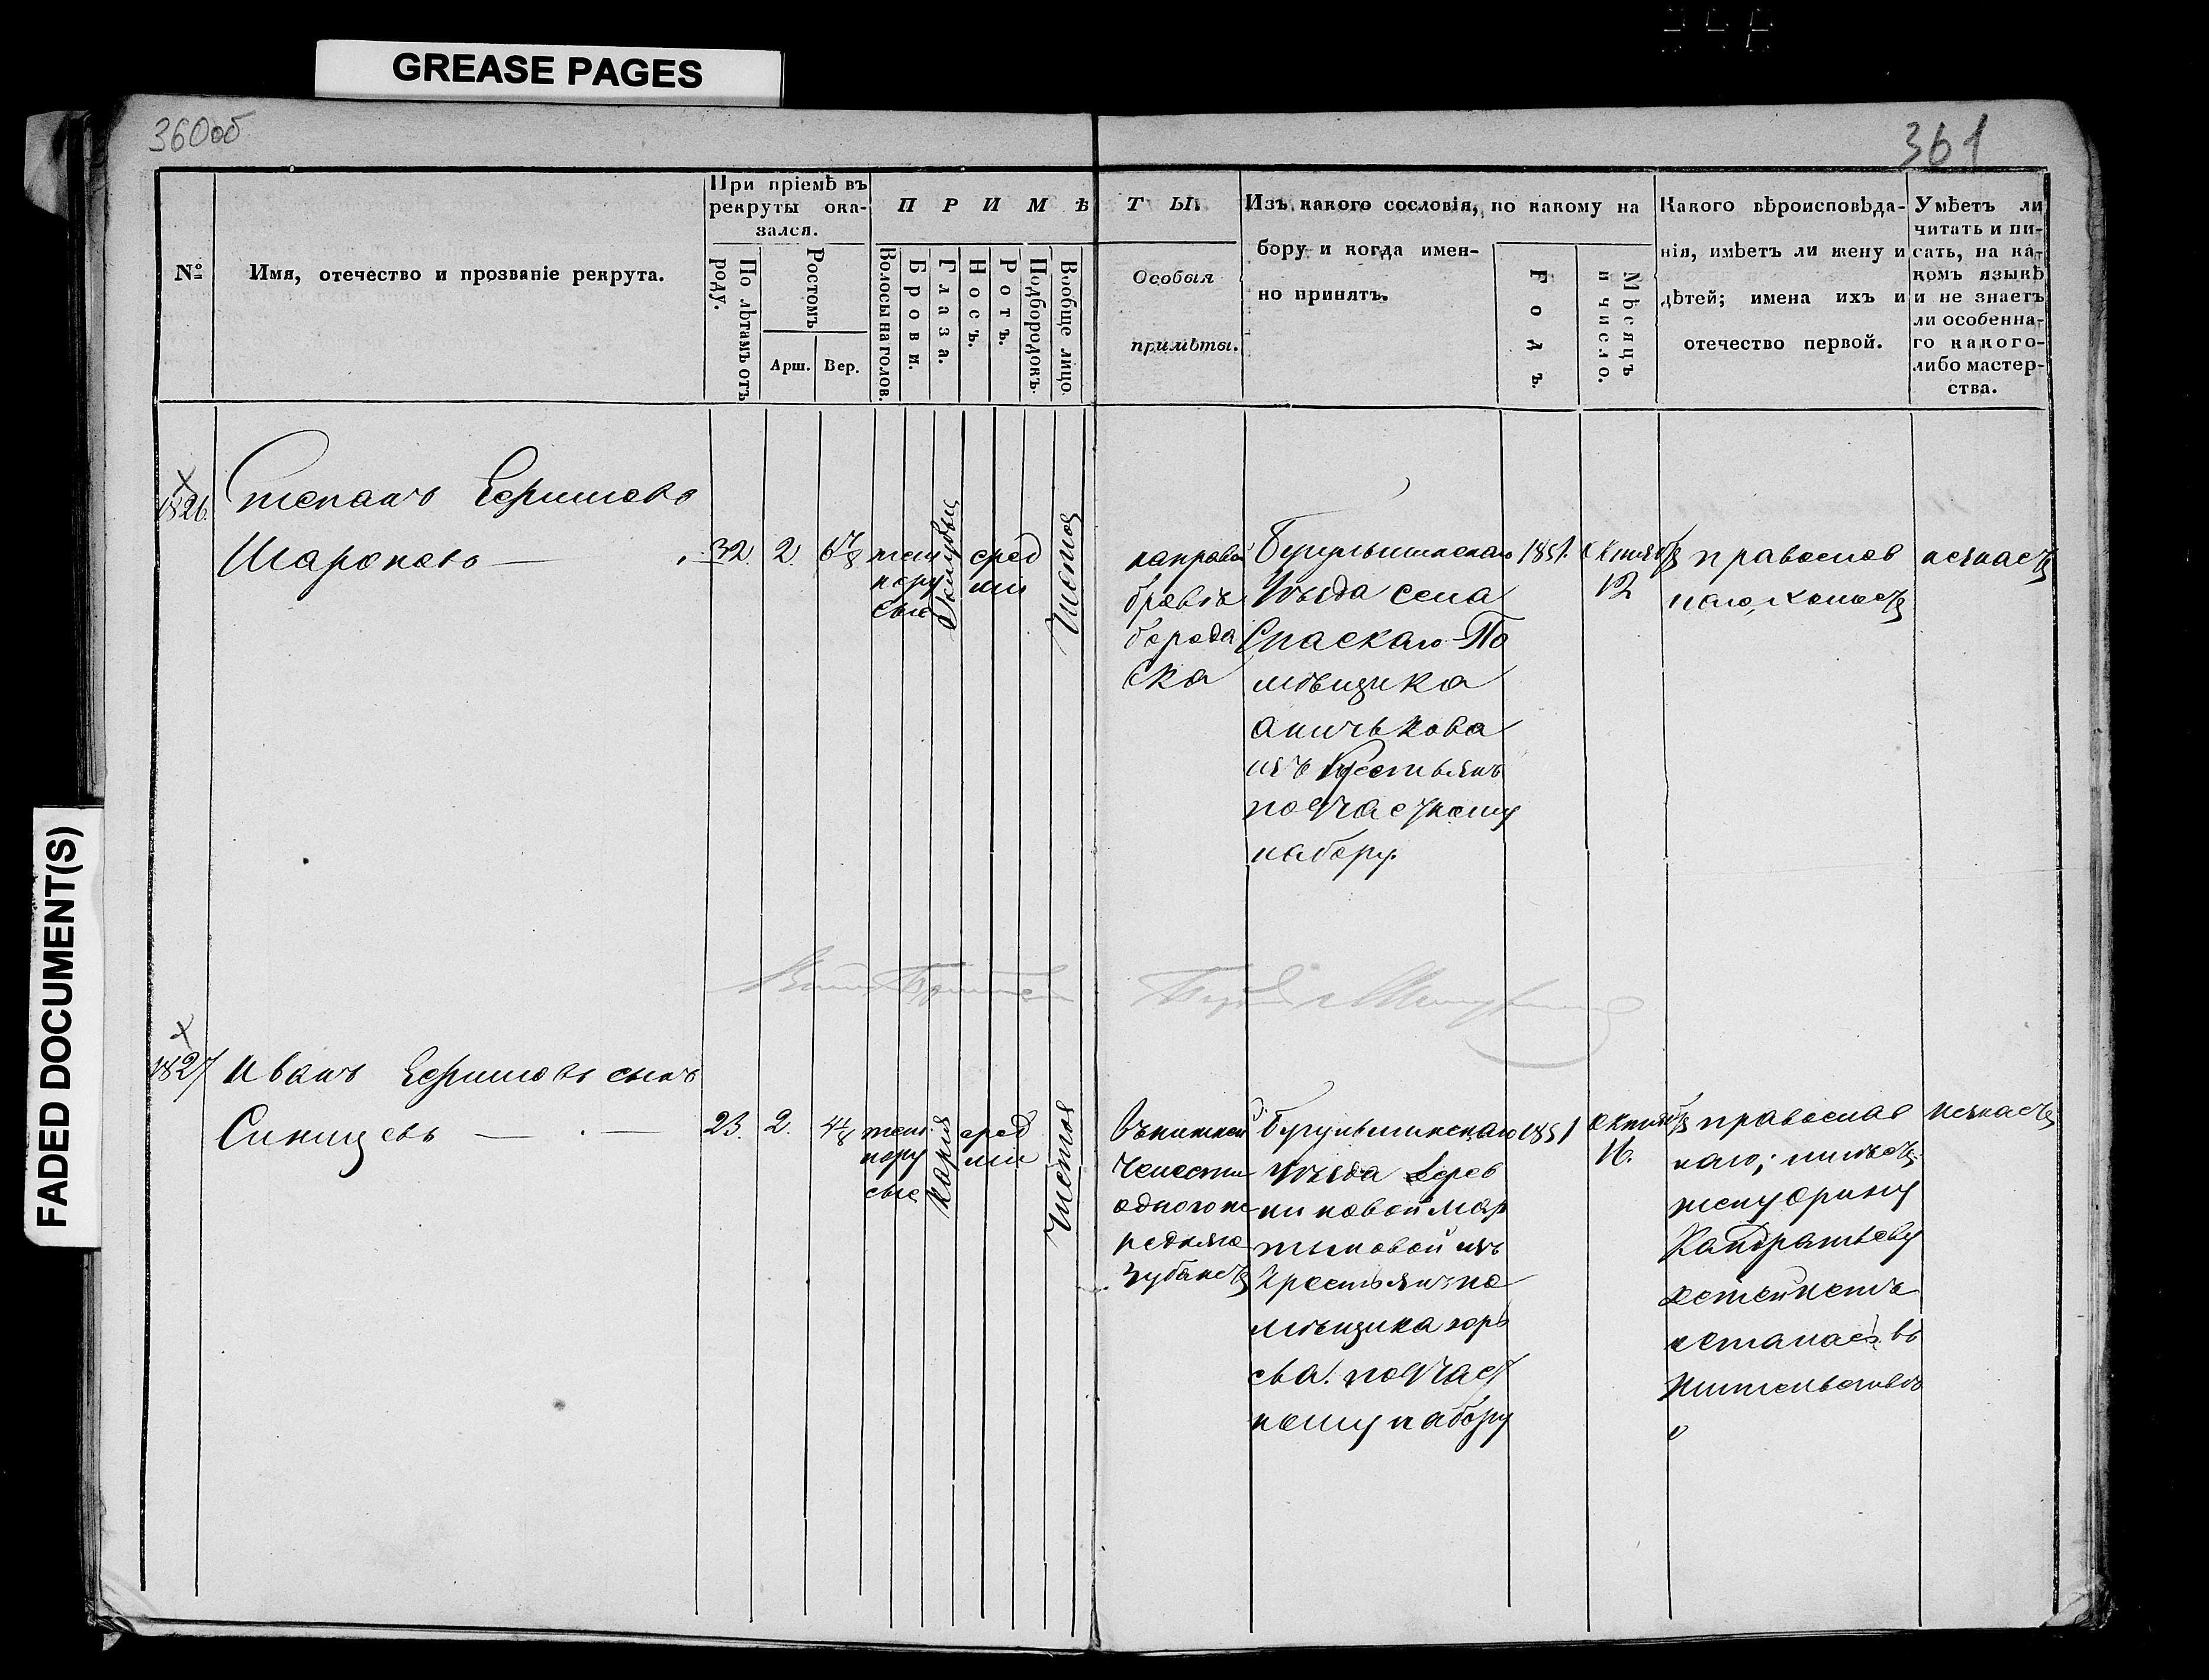 GREASE PAGES
FADED DOCUMENT(S)
360об
361
№
Имя, отечество и прозваніе рекрута.
При пріемѣ въ
рекруты ока-
зался.
По лѣтамъ отъ
роду.
Ростомъ
Арш.
Вер.
ПРИМѢ
Волосы на голов.
Брови.
Глаза.
Носъ.
Ротъ.
Подбородокъ.
Вообще лицо.
ТЫ.
Особыя
примѣты.
Изъ какого сословія, по какому на
бору и когда имен-
но принятъ.
Годъ.
Мѣсяцъ
и число.
Какого вѣроисповѣда-
нія, имѣетъ ли жену и
дѣтей; имена ихъ и
отечество первой.
Умѣетъ ли
читать и пи-
сать, на ка-
комъ языкѣ
и не знаетъ
ли особенна-
го какого-
либо мастер-
ства.
1826.
Степанъ Ефимовъ
Шароновъ
32.
2.
6⅞
тем
нору
сые
Голубые
сред
ніи
Чистое
направой
бровѣ
борода
вка
Бугульминскаго
Уѣзда Села
Спаскаго По
мѣщика
Аничькова
изъ Крестьянъ
почастному
набору.
1851.
Октября
12
православ
наго, холостъ
незнаетъ
1827
Иванъ Ефимовъ сынъ
Синицевъ
23.
2.
4⅛
тем
нору
сые
Каріе
сред
ніи
Чистое
Внижней
челюсти
одного пе
редняго
зуба нетъ
Бугульминскаго
Уѣзда Дерев
ни новой Мар
тыновой изъ
Крестьянъ по
мѣщика
почаст
ному набору
1851
Октября
16.
православ
наго; имѣетъ
жену Орину
Кандратьеву
детей нетъ
осталась въ
жительстве
незнаетъ